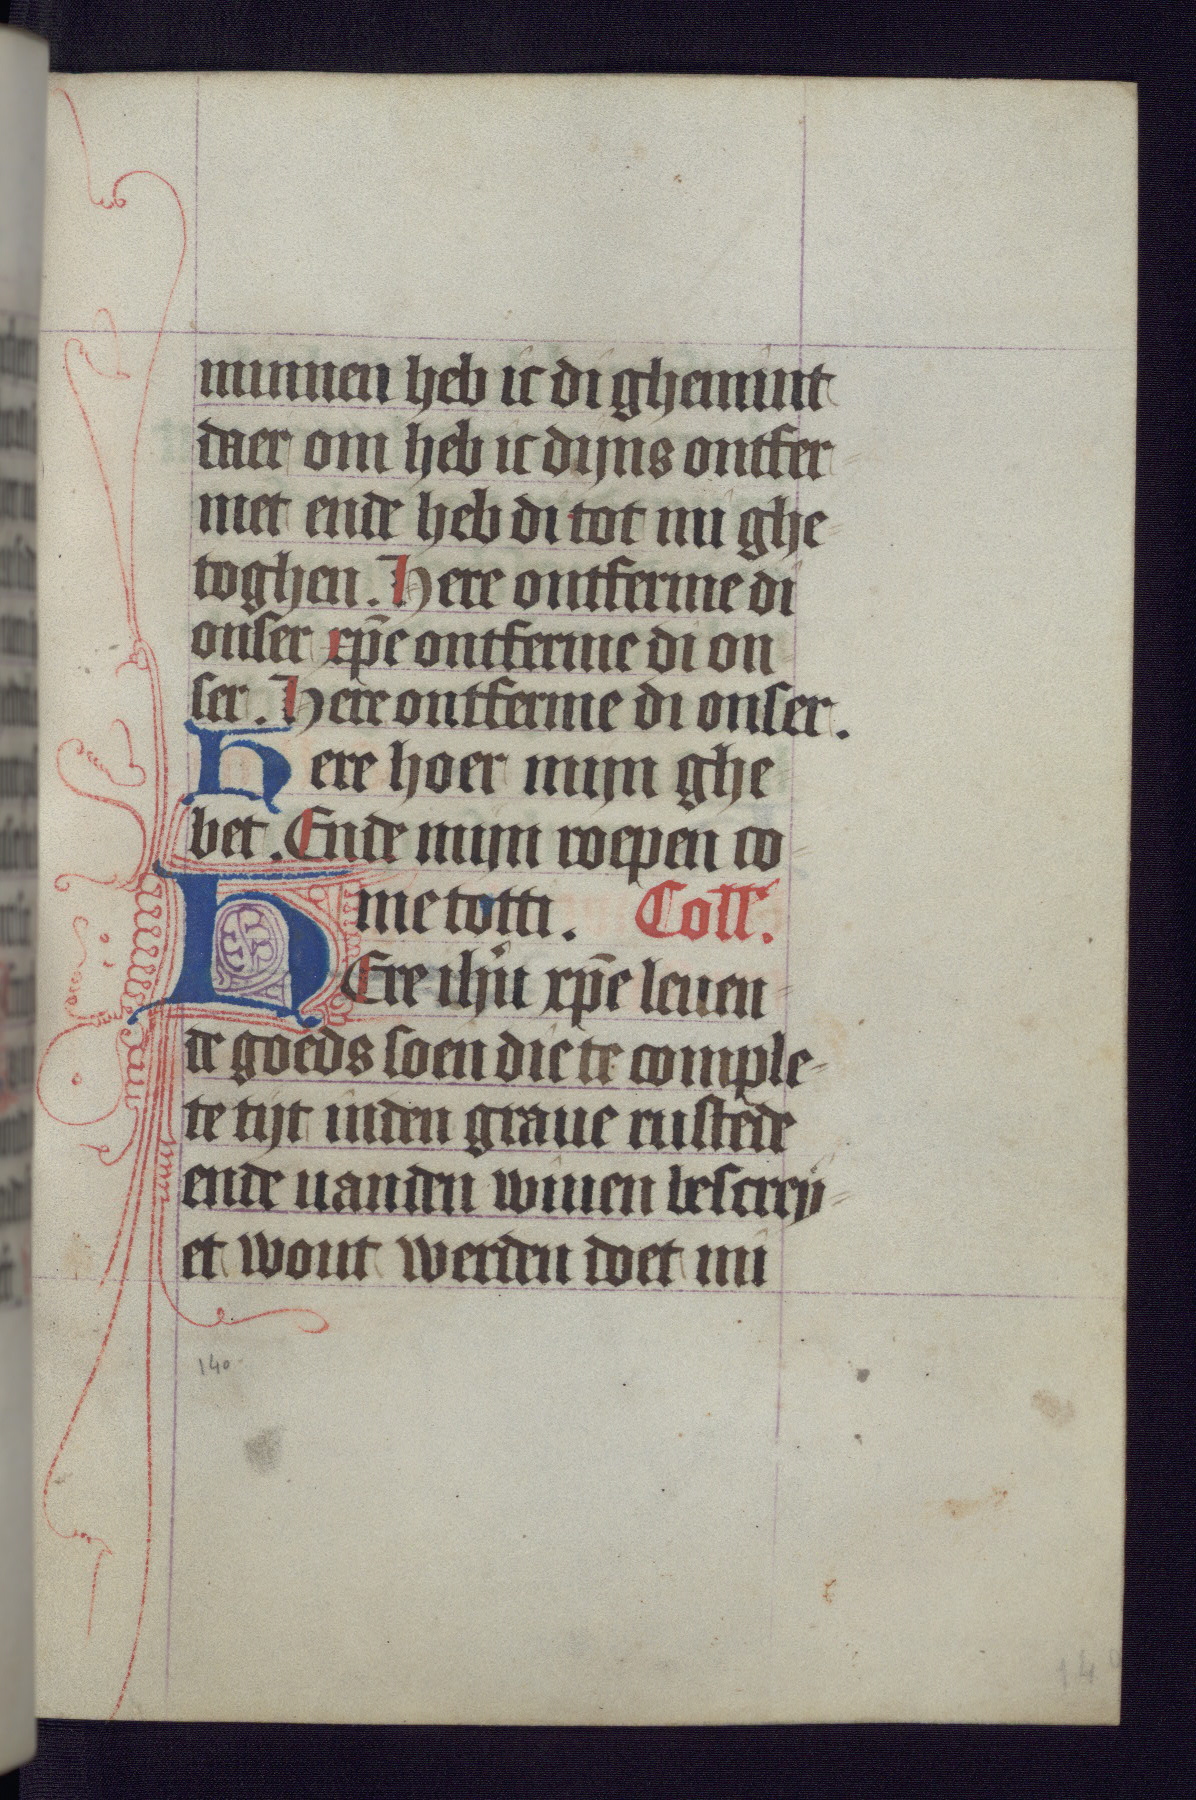 minnen heb ic di ghemint
daer om heb ic dijns ontfer
met ende heb di tot mi ghe
toghen. Here ontferme di
onser xp̄e ontferme di on
ser. Here ontferme di onser.
Here hoer mijn ghe
bet. Ende mijn roepen co
me totti. Coll'.
HEre ihū xp̄e leuen
de goeds soen die te comple
te tijt inden graue rustēde
ende uanden wiuen bescrey
et wout werden doet mi
140